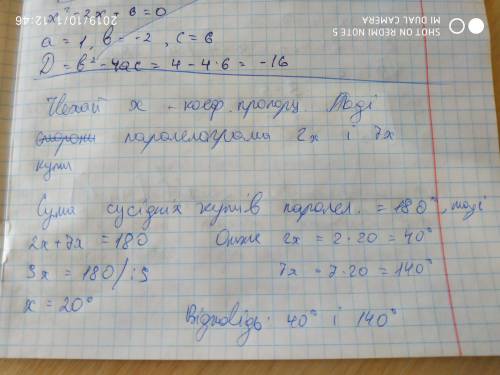 x² - 2x + 6 = 0
a = 1, b = -2, c = 6
D = b² - 4ac = 4 - 4·6 = -16
Нехай x - коеф. пропорц. Тоді
сторони паралелограма 2x і 7x
кути
Сума сусідніх кутів паралел. = 180°, тоді
2x + 7x = 180 Отже 2x = 2·20 = 40°
9x = 180 /:9 7x = 7·20 = 140°
x = 20°
Відповідь: 40° і 140°
2019/10/1 12:46
SHOT ON REDMI NOTE 5
MI DUAL CAMERA